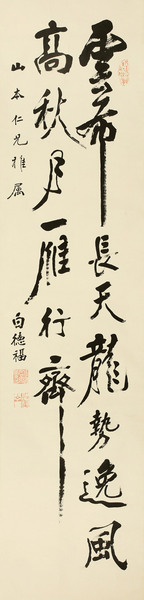 雲布長天龍勢逸風
高秋月一雁行齊
山本仁兄雅屬
白德福